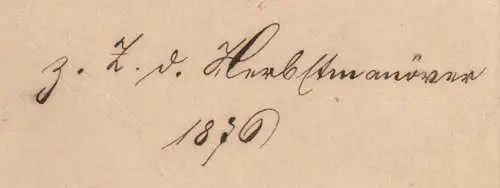 z. Z. d. Herbstmanöver
1876